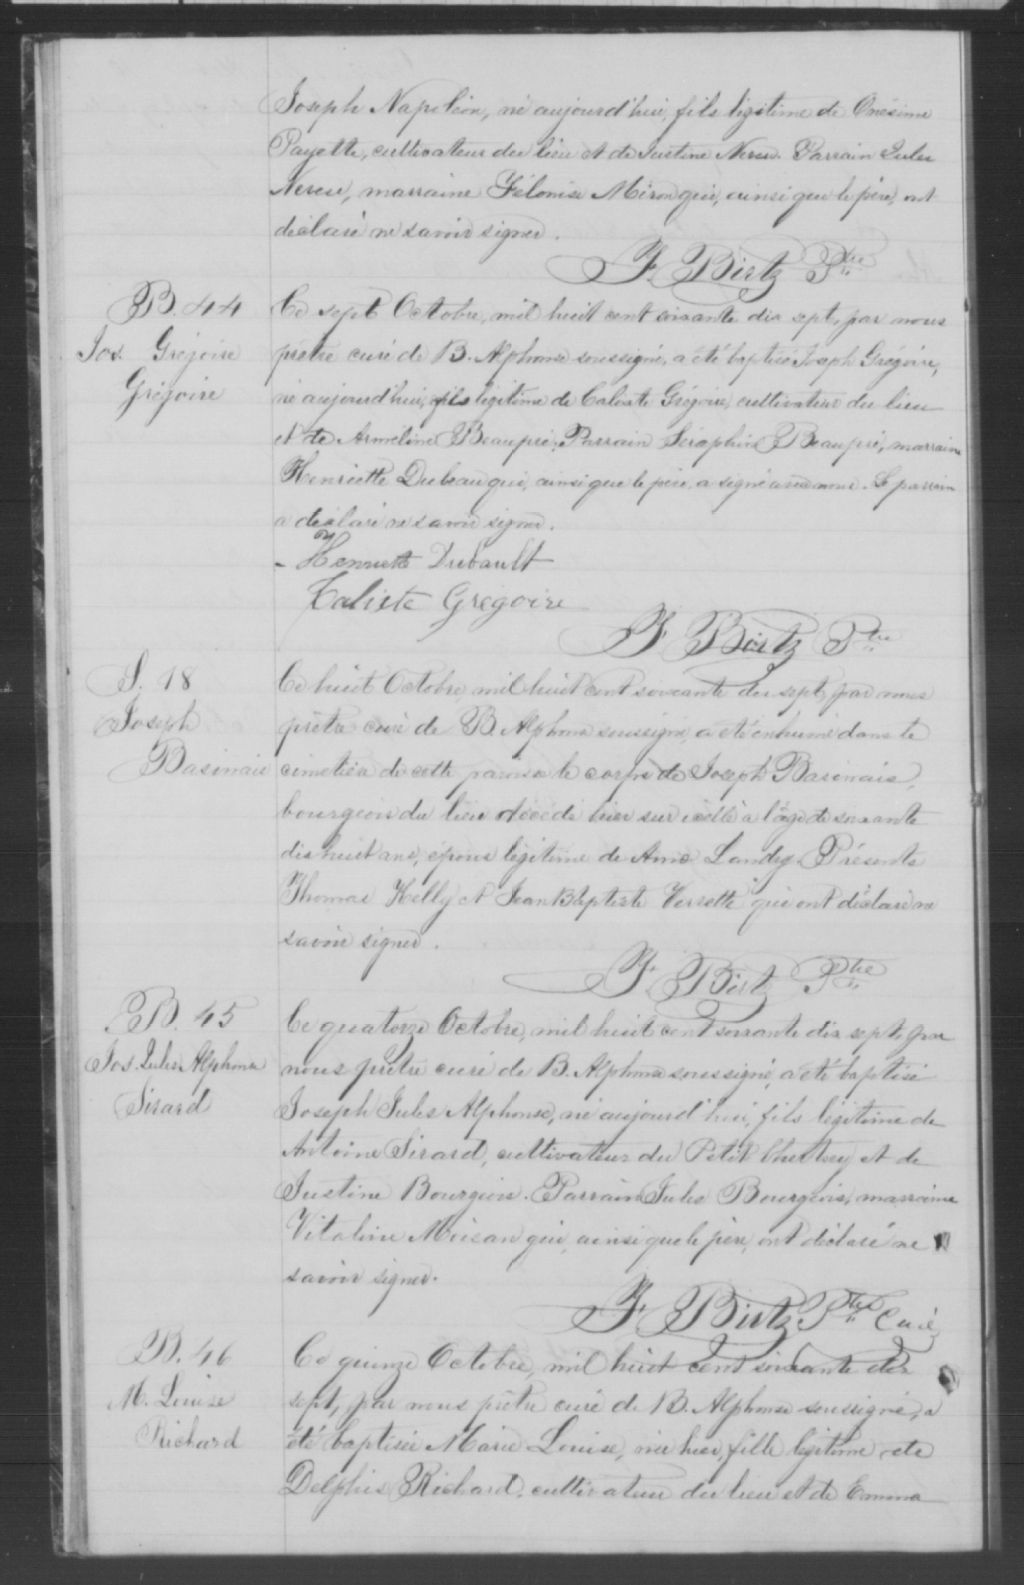 Joseph Napoléon, né aujourd'hui, fils légitime de Onésime
Payette, cultivateur du lieu et de Justine Nereu. Parrain Jules
Nereu, marraine Félonise Miron qui, ainsi que le père, ont
déclaré ne savoir signer.
F. Birtz Ptre
B. 44
Jos. Grégoire
Grégoire
Ce sept Octobre, mil huit cent soixante dix sept, par nous
prêtre curé de B. Alphonse soussigné, a été baptisé Joseph Grégoire,
né aujourd'hui, fils légitime de Calixte Grégoire, cultivateur du lieu
et de Arméline Beaupré. Parrain Séraphin Beaupré, marraine
Henriette Dubeau qui, ainsi que le père, a signé avec nous. Le parrain
a déclaré ne savoir signer.
Henriette Dubault
Caliste Gregoire
F. Birtz Ptre
S. 18
Joseph
Basinais
Ce huit Octobre, mil huit cent soixante dix sept, par nous
prêtre curé de B. Alphonse soussigné, a été enhumé dans le
cimetière de cette paroisse le corps de Joseph Basinais,
bourgeois du lieu décédé hier sur icelle à l'âge de soixante
dix huit ans, époux légitime de Anne Landry. Présents
Thomas Kelly et Jean Baptiste Verrette qui ont déclaré ne
savoir signer.
F. Birtz Ptre
B. 45
Jos. Jules Alphonse
Sirard
Ce quatorze Octobre, mil huit cent soixante dix sept, par
nous prêtre curé de B. Alphonse soussigné, a été baptisé
Joseph Jules Alphonse, né aujourd'hui, fils légitime de
Antoine Sirard, cultivateur du Petit Chertsey et de
Justine Bourgeois. Parrain Jules Bourgeois, marraine
Vitaline Moisan qui, ainsi que le père, ont déclaré ne
savoir signer.
F. Birtz Ptre Curé
B. 46
M. Louise
Richard
Ce quinze Octobre, mil huit cent soixante dix
sept, par nous prêtre curé de B. Alphonse soussigné, a
été baptisée Marie Louise, née hier, fille légitime de
Delphis Richard, cultivateur du lieu et de Emma